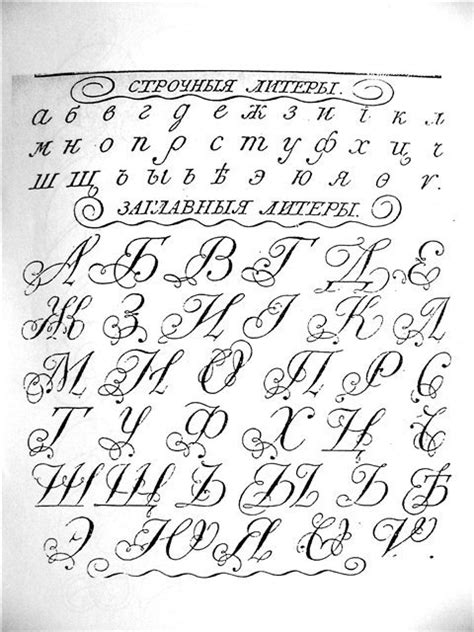 СТРОЧНЫЯ ЛИТЕРЫ.
а б в г д е ж з и і к л
м н о п р с т у ф х ц ч
ш щ ъ ы ь ѣ э ю я ѳ ѵ.
ЗАГЛАВНЫЯ ЛИТЕРЫ.
А Б В Г Д Е
Ж З И І К Л
М Н О П Р С
Т У Ф Х Ц Ч
Ш Щ Ъ Ы Ь Ѣ
Э Ю Я Ѳ Ѵ.